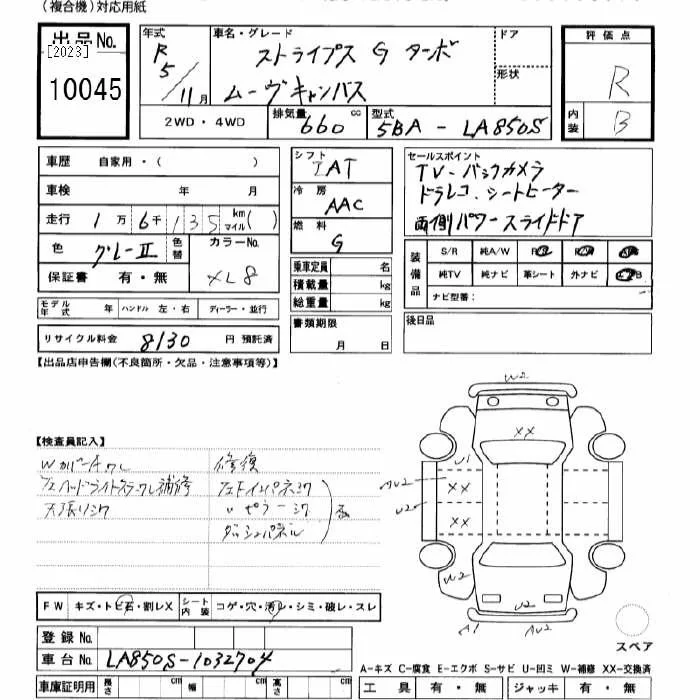 (複合機)対応用紙
出品No.
[2023]
10045
年式
R
5/11月
車名・グレード
ストライプス G ターボ
ムーヴキャンバス
ドア
形状
評価点
R
内装
B
2WD・4WD
排気量
660
cc
型式
5BA - LA850S
車歴
自家用・( )
車検
年 月
走行
1万6千135
km
マイル( )
色
グレーII
色替
カラーNo.
XL8
保証書
有・無
モデル年式
年
ハンドル 左・右
ディーラー・並行
リサイクル料金
8130
円 預託済
シフト
IAT
冷房
AAC
燃料
G
乗車定員
名
積載量
kg
総重量
kg
書類期限
月 日
セールスポイント
TV - バックカメラ
ドラレコ、シートヒーター
両側パワースライドドア
装備品
S/R 純A/W
純TV 純ナビ 革シート 外ナビ
ナビ型番:
後日品
【出品店申告欄(不良箇所・欠品・注意事項等)】
【検査員記入】
天張リシワ
修復
ダッシュパネル
W2
XX
U1
AU2
XX
U2
XX
W2
W2
U2
A1
AU2
スペア
FW
キズ・トビ石・割レX
シート内装
コゲ・穴・汚レ・シミ・破レ・スレ
登録No.
車台No.
LA850S-1032704
車庫証明用
長さ
cm
幅
cm
高さ
cm
A-キズ C-腐食 E-エクボ S-サビ U-凹ミ W-補修 XX-交換済
工具 有・無 ジャッキ 有・無